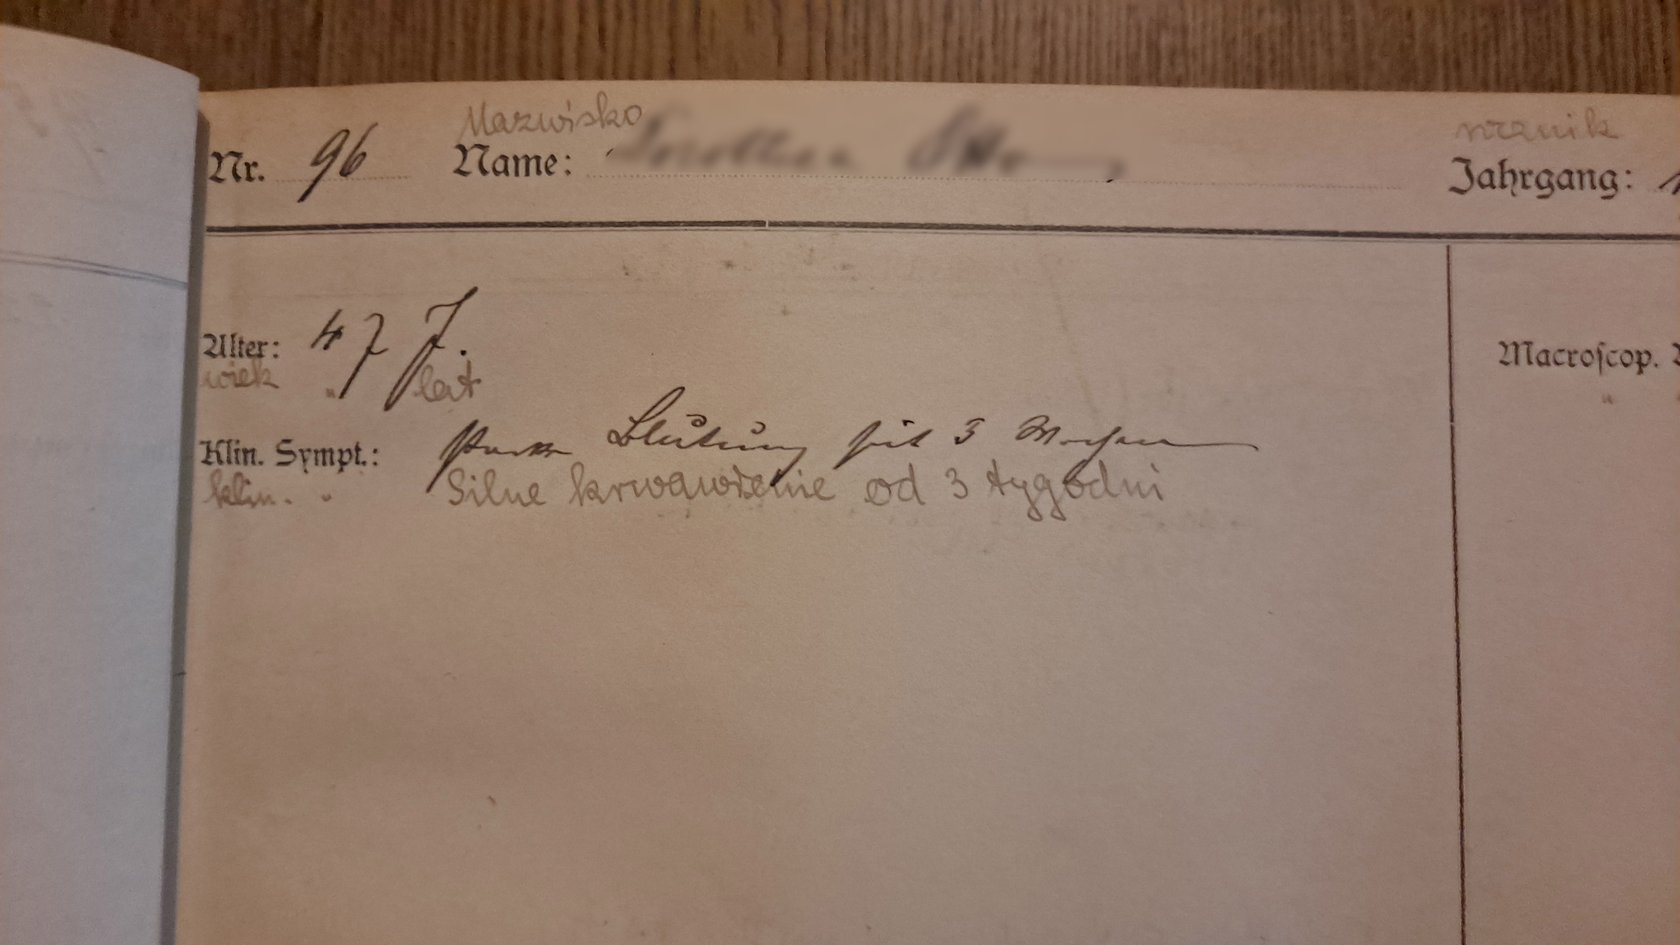 Nazwisko rocznik
Nr. 96 Name: Jahrgang: 1
Alter: 47 J. Macroscop.
wiek " lat "
Klin. Sympt.: starke Blutung seit 3 Wochen
klin. " Silne krwawienie od 3 tygodni